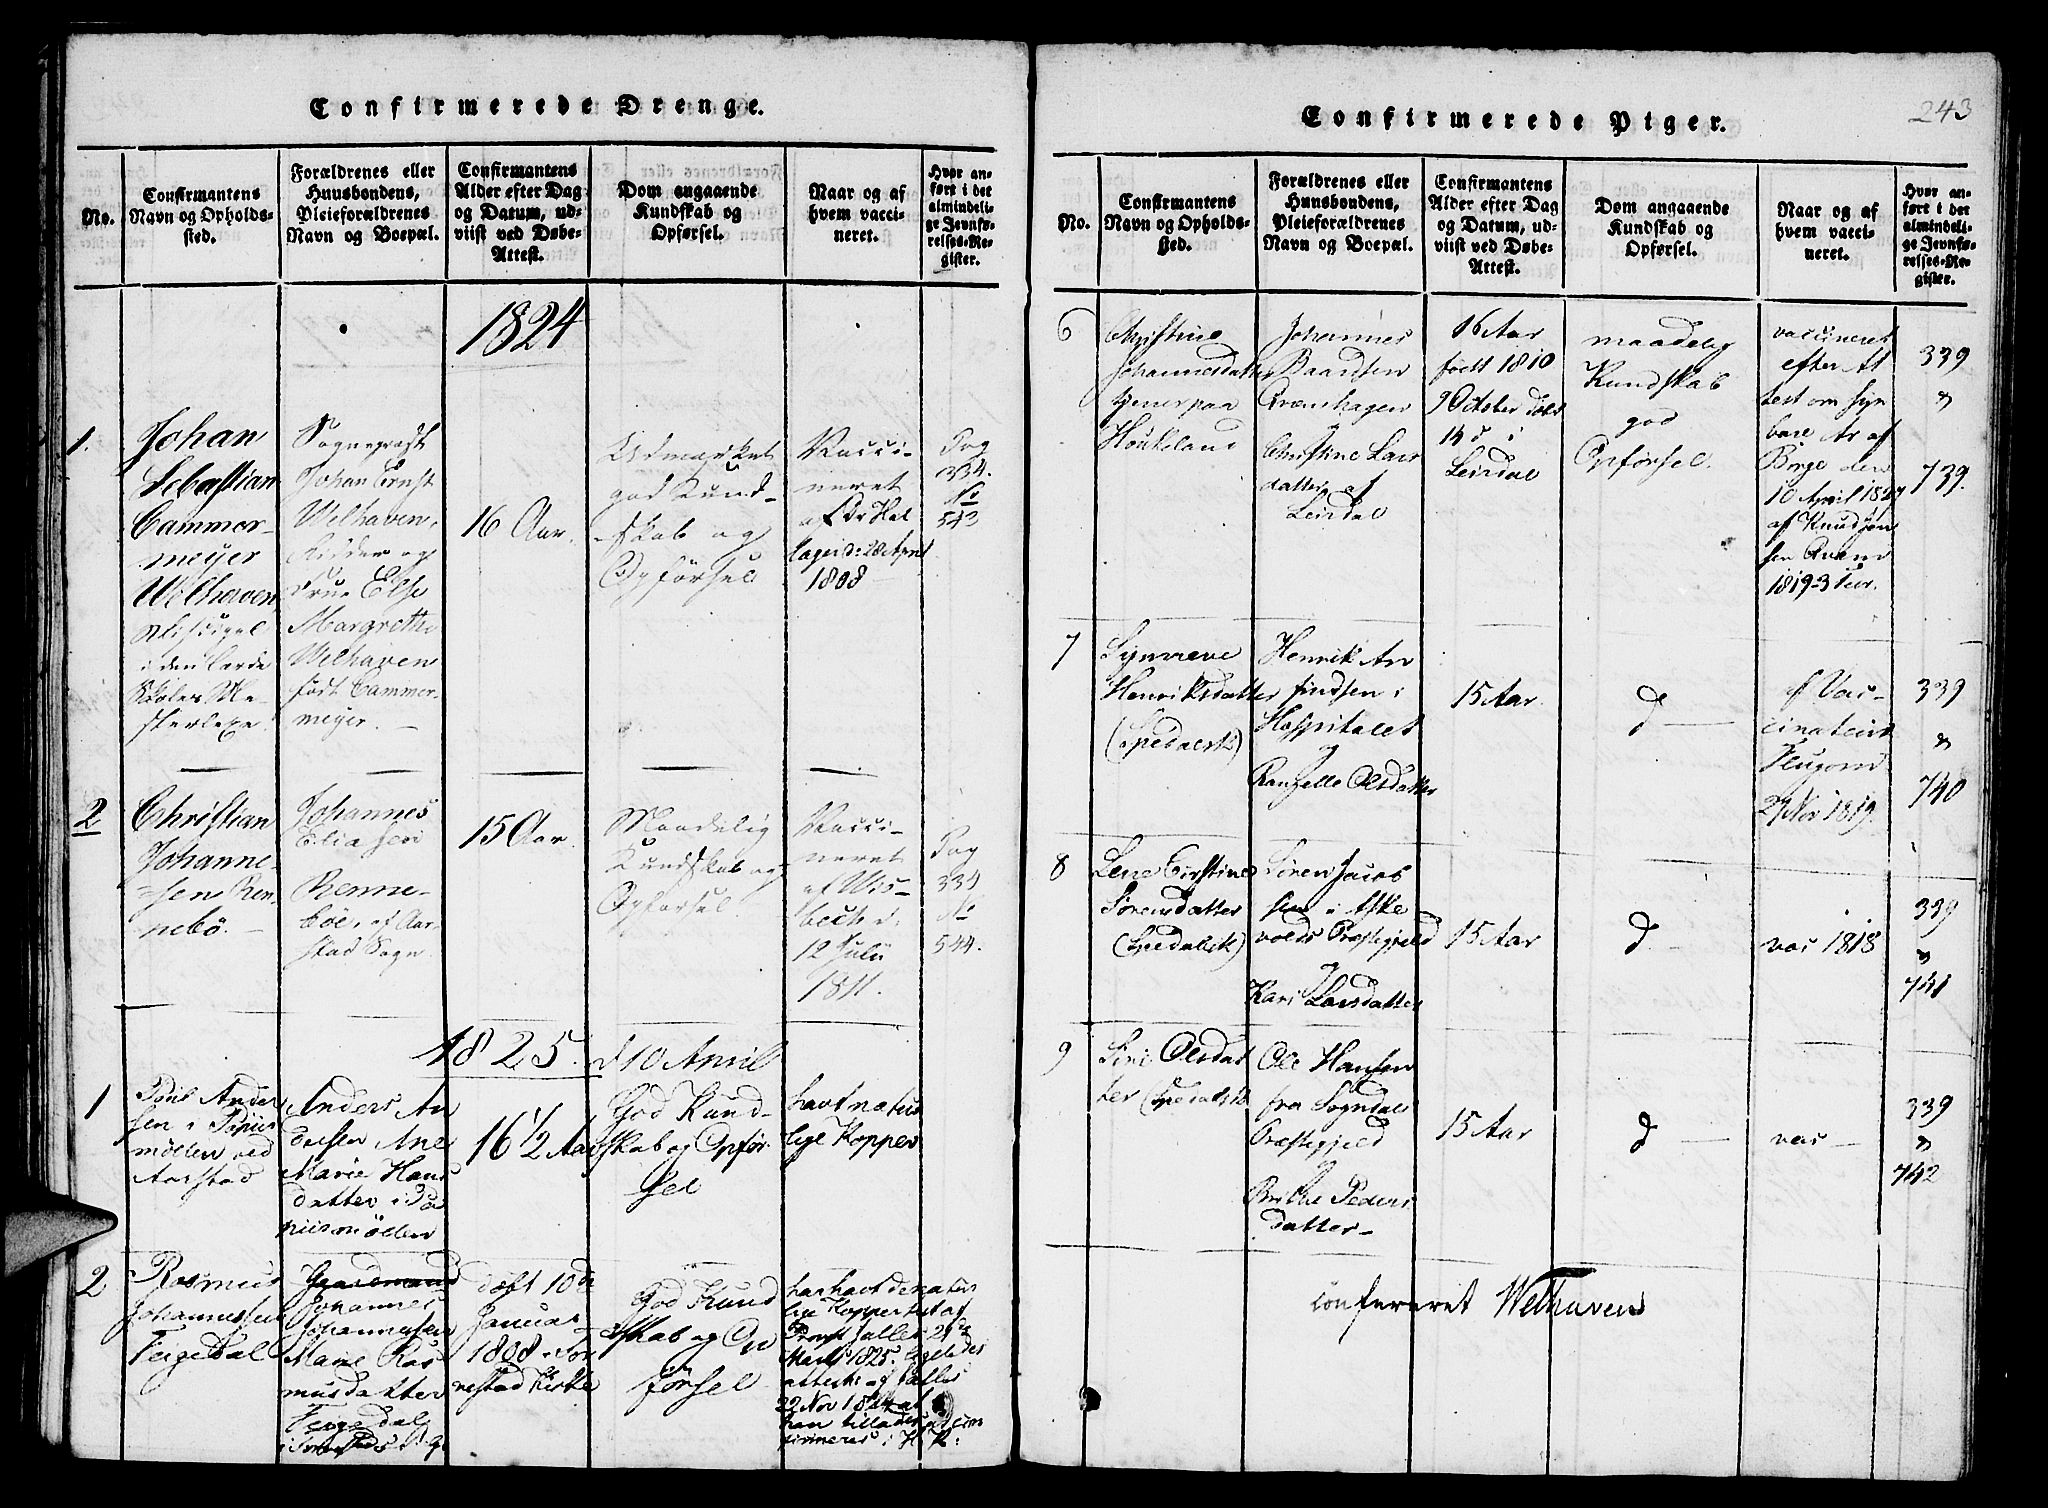 Confirmerede Drenge.
No.
Confirmantens
Navn og Opholds-
sted.
Forældrenes eller
Huusbondens,
Pleieforældrenes
Navn og Boepæl.
Confirmantens
Alder efter Dag
og Datum, ud-
viist ved Døbe-
Attest.
Dom angaaende
Kundskab og
Opførsel.
Naar og af
hvem vacci-
neret.
Hvor an-
ført i det
almindeli-
ge Jevnfø-
relses-Re-
gister.
1824
1.
Johan
Sebastian
Cammer-
meyer
Welhaven
i den lærde
Skoles Me-
sterlexe
Sogneprest
Johan Ernst
Welhaven,
Ridder og
Frue Else
Margrethe
Welhaven
født Cammer-
meyer.
16 Aar.
Udmærket
god Kund-
skab og
Opførsel
Vacci-
neret
af Dr
d: 28 April
1808
Pag
334.
No
543
2
Christian
Johanne-
sen Ren-
nebö.
Johannes
Eliasen
Renne-
böe, af Aar-
stad Sogn
15 Aar.
Maadelig
Kundskab og
Opførsel.
Vacci-
neret
af Wis-
becht d:
12 Julii
1811.
Pag
334
No
544.
1825. d 10 April
1
Ander
sen i Papiir
möllen ved
Aarstad
Anders An
dersen Ane
Marie Hans
datter i Pa
piirmöllen
16 1/2 Aar
God Kund-
skab og Opför-
sel
havt natur
lige Kopper
2
Rasmus
Johannessen
Feigedal
Gaardmand
Johannes
Johannesen
Marie Ras
musdatter
Feigedal
döbt 10de
Januar
1808 i
Kirke
God Kund
skab og Op
førsel
har havt de natur
lige Kopper
Provst 21de
Marts 1825.
22 Nov 1824 at
han tillades at con
firmeres i
Confirmerede Piger.
243
No.
Confirmantens
Navn og Opholds-
sted.
Forældrenes eller
Huusbondens,
Pleieforældrenes
Navn og Boepæl.
Confirmantens
Alder efter Dag
og Datum, ud-
viist ved Døbe-
Attest.
Dom angaaende
Kundskab og
Opførsel.
Naar og af
hvem vacci-
neret.
Hvor an-
ført i det
almindeli-
ge Jevnfø-
relses-Re-
gister.
6
Christine
Johannesdatter
tjener paa
Houkeland
Johannes
Baardsen
Christine Lars
datter af
Leirdal
16 Aar
født 1810
9 October döbt
14 d i
Leirdal
maadelig
Kundskab
god
Opførsel.
vaccineret
efter At
test om syn
bare Ar af
Borge den
10 April 1827
af Knud Jon
sen
1819
339
739.
7
Synneve
Henriksdatter
(Spedalsk)
Henrik Ar
findsen i
Hospitalet
og
Olsdatter
15 Aar.
d
af Vac-
cinateur
27 Nov 1819.
339
740
8
Lene Cirstine
Sörensdatter
(Spedalsk)
Sören Jacob
sen i Aske
volds Præstegjeld
og
Kari Larsdatter
15 Aar
d
vac 1818
339
741
9
Siri Olesdat
ter (Spedalsk)
Ole Hansen
fra Sogndals
Præstegjeld
og
Brithe Peders
datter
15 Aar
d
vac
339
742
confereret Welhaven